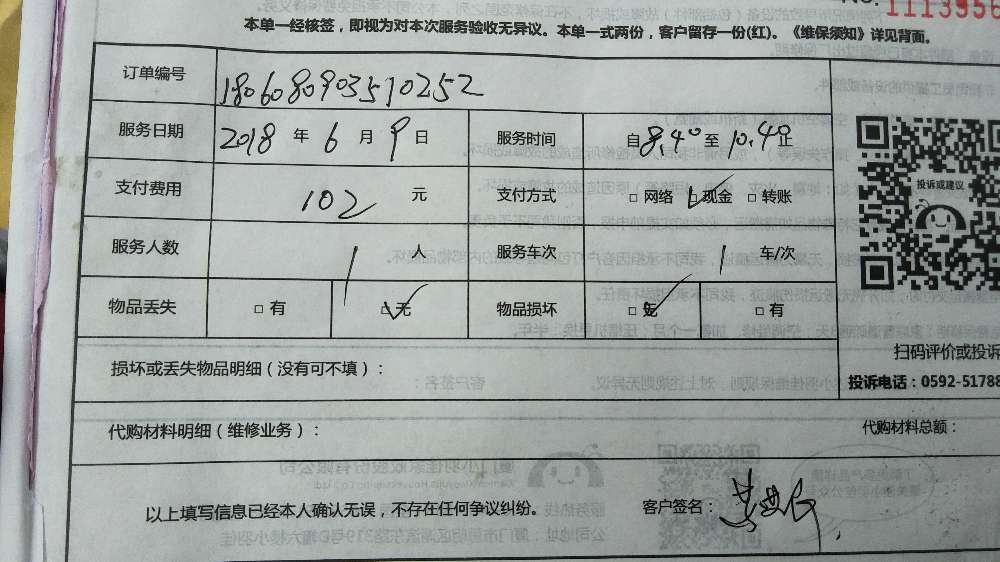 NO. 1113956
本单一经核签，即视为对本次服务验收无异议。本单一式两份，客户留存一份(红)。《维保须知》详见背面。
订单编号 180608903510252
服务日期 2018 年 6 月 9 日 服务时间 自 8.40 至 10.40 止
支付费用 102 元 支付方式 □ 网络 □ 现金 □ 转账
服务人数 1 人 服务车次 1 车/次
物品丢失 □ 有 □ 无 物品损坏 □ 无 □ 有
投诉或建议
扫码评价或投诉
损坏或丢失物品明细（没有可不填）：
投诉电话：0592-51788
代购材料明细（维修业务）： 代购材料总额：
以上填写信息已经本人确认无误，不存在任何争议纠纷。 客户签名：